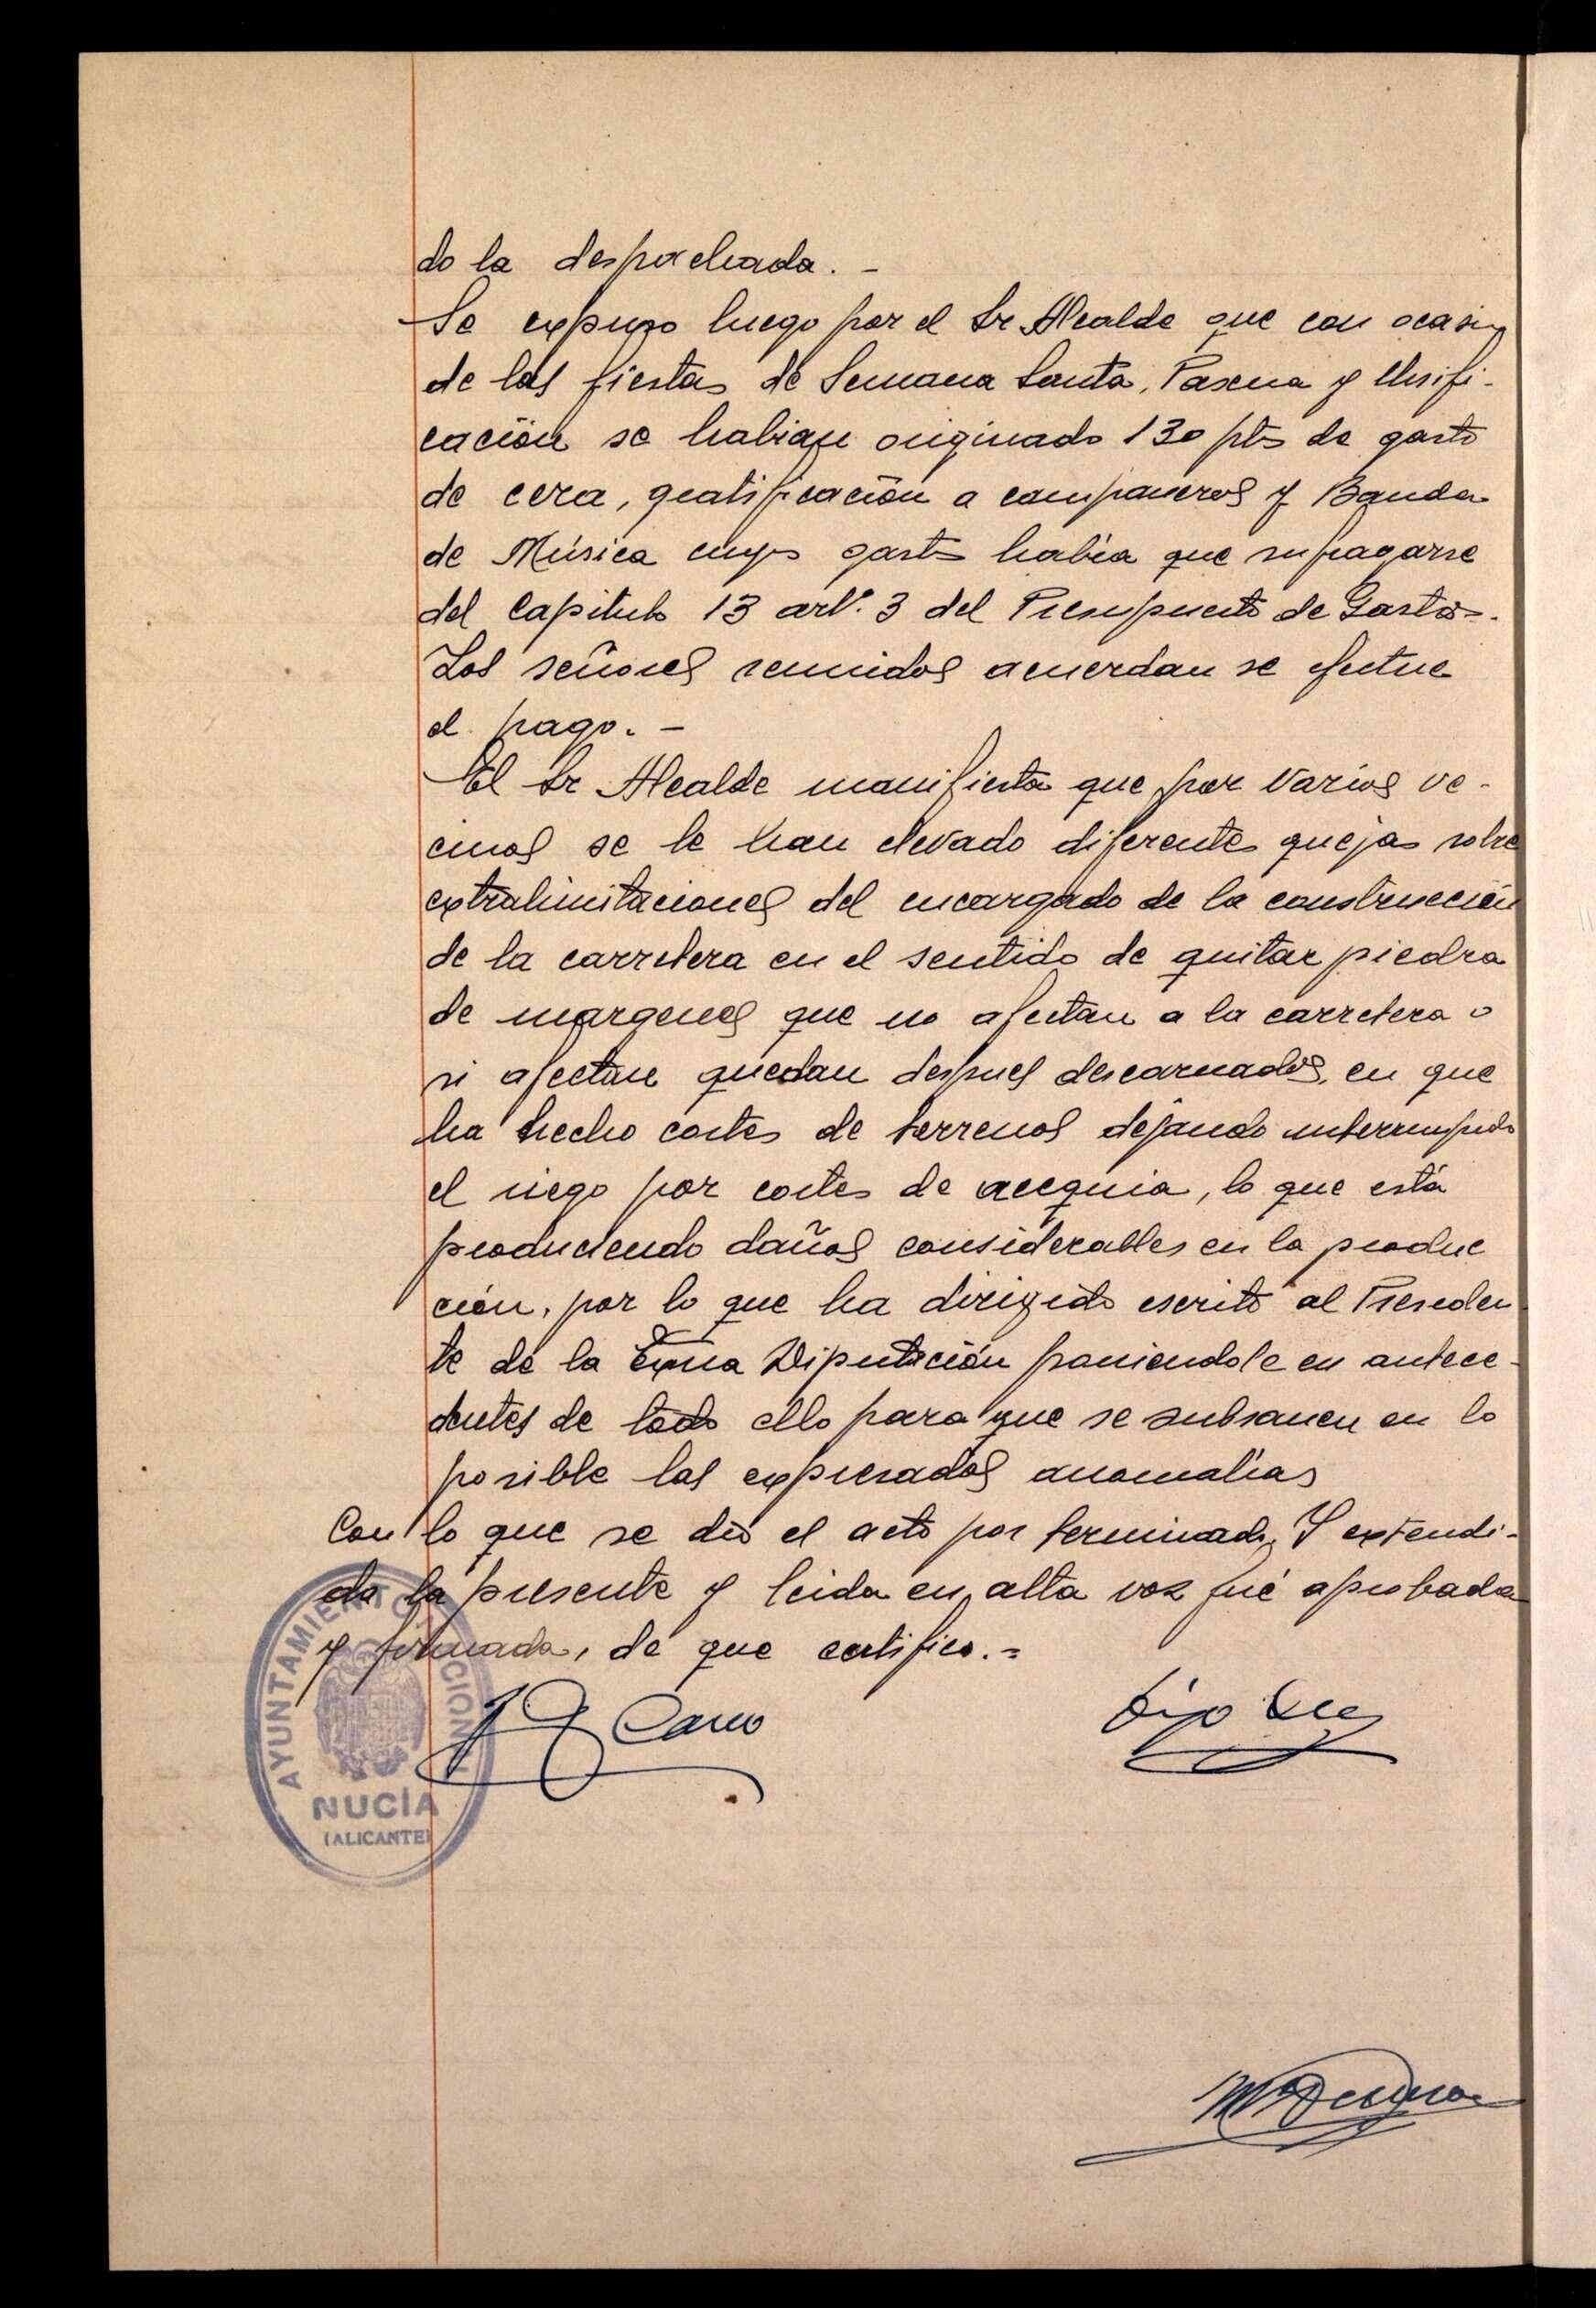 do la despachada. -
Se expuso luego por el Sr Alcalde que con ocasión
de las fiestas de Semana Santa, Pascua y Unifi-
cación se habian originado 130 pts de gasto
de cera, gratificación a campaneros y Banda
de Música cuyo gasto había que sufragarse
del Capitulo 13 artº. 3 del Presupuesto de Gastos-.
Los señores reunidos acuerdan se efectue
el pago. -
El Sr Alcalde manifiesta que por varios ve-
cinos se le han elevado diferentes quejas sobre
extralimitaciones del encargado de la construcción
de la carretera en el sentido de quitar piedra
de margenes que no afectan a la carretera o
si afectan quedan despues descarnados, en que
ha hecho cortes de terrenos dejando interrumpido
el riego por cortes de acequia, lo que está
produciendo daños considerables en la produc
ción, por lo que ha dirigido escrito al Presiden
te de la Exma Diputación poniendole en antece-
dentes de todo ello para que se subsanen en lo
posible las expresadas anomalías
Con lo que se dió el acto por terminado, Y extendi-
da la presente y leida en alta voz fué aprobada
y firmada, de que certifico.=
Cano
AYUNTAMIENTO NACIONAL
NUCÍA
(ALICANTE)